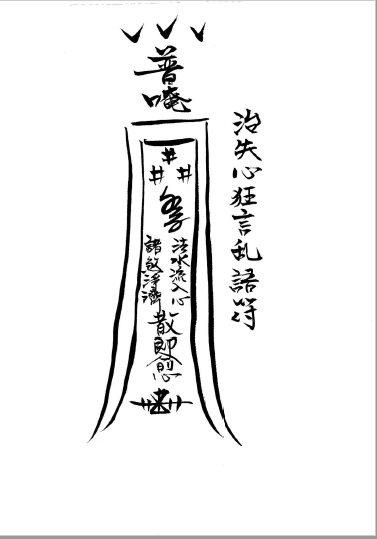 治失心狂言乱語符
普唵
井
井井
法水流入心
諸
散即愈